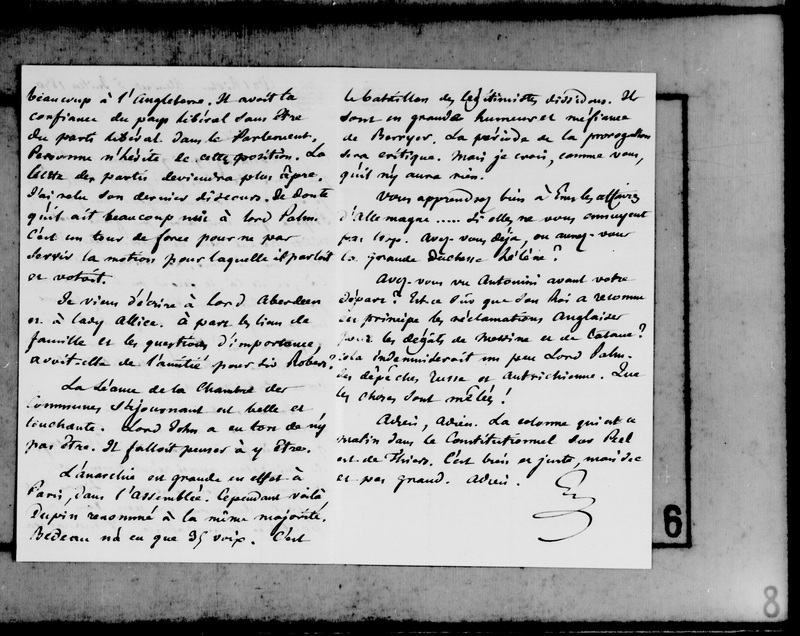 beaucoup à l'Angleterre. Il avoit la
confiance du pays libéral sans être
du parti libéral dans le Parlement.
Personne n'hérite de cette position. La
lutte des partis deviendra plus âpre.
J'ai relu son dernier discours. Je doute
qu'il ait beaucoup nui à lord Palm.
C'est un tour de force pour ne pas
servir la motion pour laquelle il parloit
et votoit.
Je viens d'écrire à Lord Aberdeen
et à lady Allice. à part les liens de
famille et les questions d'importance,
avoit-elle de l'amitié pour Sir Robert?
La Séance de la Chambre des
Communes s'ajournant est belle et
touchante. Lord John a eu tort de n'y
pas être. Il falloit penser à y être.
L'anarchie est grande en effet à
Paris, dans l'Assemblée. Cependant voilà
Dupin renommé à la même majorité.
Bedeau n'a eu que 35 voix. C'est
le bataillon des légitimistes dissidens. Ils
sont en grande humeur et méfiance
de Berryer. La période de la prorogation
sera critique. Mais je crois, comme vous,
qu'il n'y aura rien.
Vous apprendrez bien à Ems les affaires
d'Allemagne ..... Si elles ne vous ennuyent
pas trop. Avez-vous déjà, ou aurez-vous
la grande Duchesse Hélène?
Avez-vous vu Antonini avant votre
départ? Est-ce sûr que son Roi a reconnu
en principe les réclamations Anglaises
pour les dégâts de Messine et de Catane?
Cela indemniseroit un peu Lord Palm.
des dépêches Russe et Autrichienne. Que
les choses sont mêlées!
Adieu, adieu. La colonne qui est ce
matin dans le Constitutionnel sur Peel
est de Thiers. C'est bien et juste, mais sec
et pas grand. Adieu.
6
8